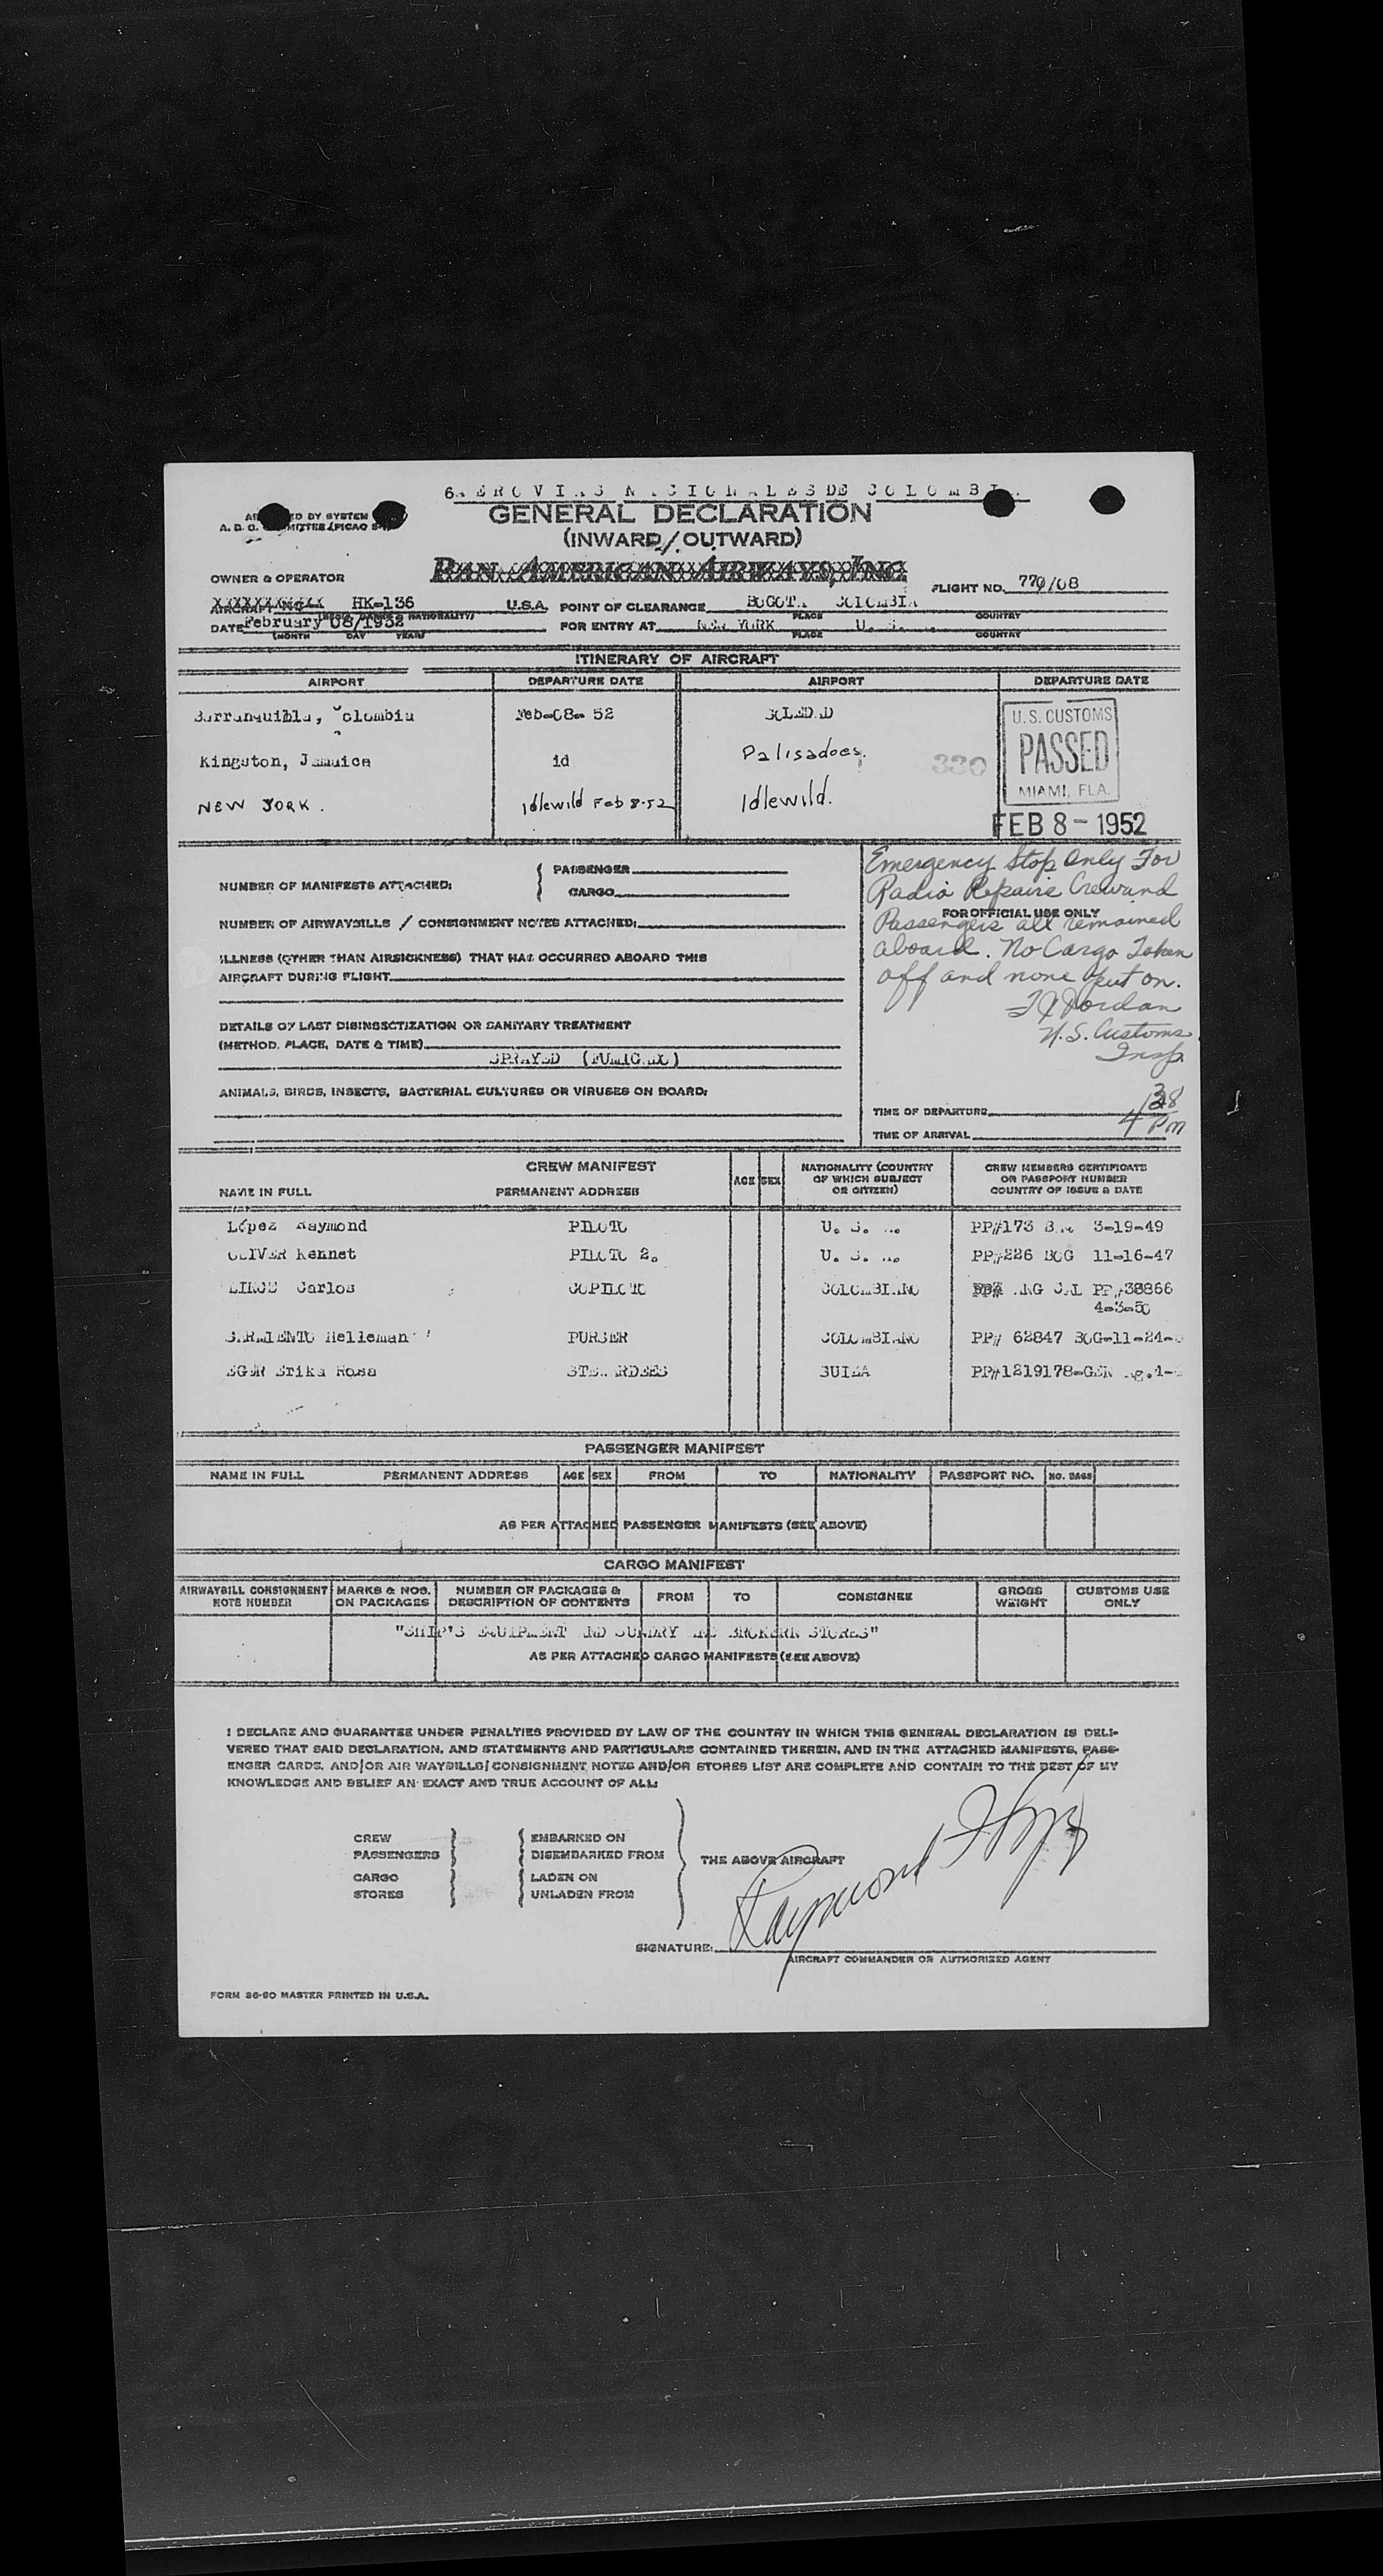 AEROVIAS NACIONALES DE COLOMBIA
GENERAL DECLARATION
(INWARD/OUTWARD)
PAN AMERICAN AIRWAYS, INC.
OWNER & OPERATOR
FLIGHT NO. 770/08
HK-136 U.S.A. POINT OF CLEARANCE BOGOTA COLOMBIA
PLACE COUNTRY
DATE February 08/1952 FOR ENTRY AT NEW YORK U. S.
(MONTH DAY YEAR) PLACE COUNTRY
ITINERARY OF AIRCRAFT
AIRPORT DEPARTURE DATE AIRPORT DEPARTURE DATE
Barranquilla, Colombia Feb-08- 52 SOLEDAD
Kingston, Jamaica id Palisadoes. 330
NEW YORK. Idlewild Feb 8-52 Idlewild.
U.S. CUSTOMS
PASSED
MIAMI, FLA.
FEB 8 - 1952
Emergency Stop Only For
Radio Repairs Crew and
Passengers all remained
aboard. No Cargo Taken
off and none put on.
Jordan
U.S. Customs
Insp.
FOR OFFICIAL USE ONLY
NUMBER OF MANIFESTS ATTACHED: PASSENGER
CARGO
NUMBER OF AIRWAYBILLS / CONSIGNMENT NOTES ATTACHED:
ILLNESS (OTHER THAN AIRSICKNESS) THAT HAS OCCURRED ABOARD THIS
AIRCRAFT DURING FLIGHT
DETAILS OF LAST DISINSECTIZATION OR SANITARY TREATMENT
(METHOD, PLACE, DATE & TIME)
SPRAYED (FUMIGEX)
ANIMALS, BIRDS, INSECTS, BACTERIAL CULTURES OR VIRUSES ON BOARD:
TIME OF DEPARTURE
TIME OF ARRIVAL
CREW MANIFEST
NAME IN FULL PERMANENT ADDRESS AGE SEX NATIONALITY (COUNTRY OF WHICH SUBJECT OR CITIZEN) CREW MEMBERS CERTIFICATE OR PASSPORT NUMBER COUNTRY OF ISSUE & DATE
López Raymond PILOTO U. S. A. PP#173 B.A. 3-19-49
OLIVER Kennet PILOTO 2. U. S. A. PP#226 BOG 11-16-47
Carlos COPILOTO COLOMBIANO PP#38866
4-3-50
SARMIENTO Helleman PURSER COLOMBIANO PP# 62847 BOG-11-24-
EGER Erika Rosa STEWARDEES SUIZA PP#1219178-GEN Ag.4-
PASSENGER MANIFEST
NAME IN FULL PERMANENT ADDRESS AGE SEX FROM TO NATIONALITY PASSPORT NO. NO. BAGS
AS PER ATTACHED PASSENGER MANIFESTS (SEE ABOVE)
CARGO MANIFEST
AIRWAYBILL CONSIGNMENT NOTE NUMBER MARKS & NOS. ON PACKAGES NUMBER OF PACKAGES & DESCRIPTION OF CONTENTS FROM TO CONSIGNEE GROSS WEIGHT CUSTOMS USE ONLY
"SHIP'S EQUIPMENT AND SUNDRY AND BROKERN STORES"
AS PER ATTACHED CARGO MANIFESTS (SEE ABOVE)
I DECLARE AND GUARANTEE UNDER PENALTIES PROVIDED BY LAW OF THE COUNTRY IN WHICH THIS GENERAL DECLARATION IS DELI-
VERED THAT SAID DECLARATION, AND STATEMENTS AND PARTICULARS CONTAINED THEREIN, AND IN THE ATTACHED MANIFESTS, PASS-
ENGER CARDS, AND/OR AIR WAYBILLS/CONSIGNMENT NOTES AND/OR STORES LIST ARE COMPLETE AND CONTAIN TO THE BEST OF MY
KNOWLEDGE AND BELIEF AN EXACT AND TRUE ACCOUNT OF ALL:
CREW EMBARKED ON
PASSENGERS DISEMBARKED FROM THE ABOVE AIRCRAFT
CARGO LADEN ON
STORES UNLADEN FROM
SIGNATURE: Raymond
AIRCRAFT COMMANDER OR AUTHORIZED AGENT
FORM 36-90 MASTER PRINTED IN U.S.A.